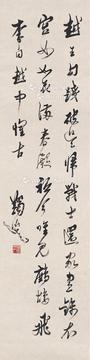 越王勾踐破吳歸戰士還家盡錦衣
宮女如花滿春殿只今惟見鷓鴣飛
李白越中懷古